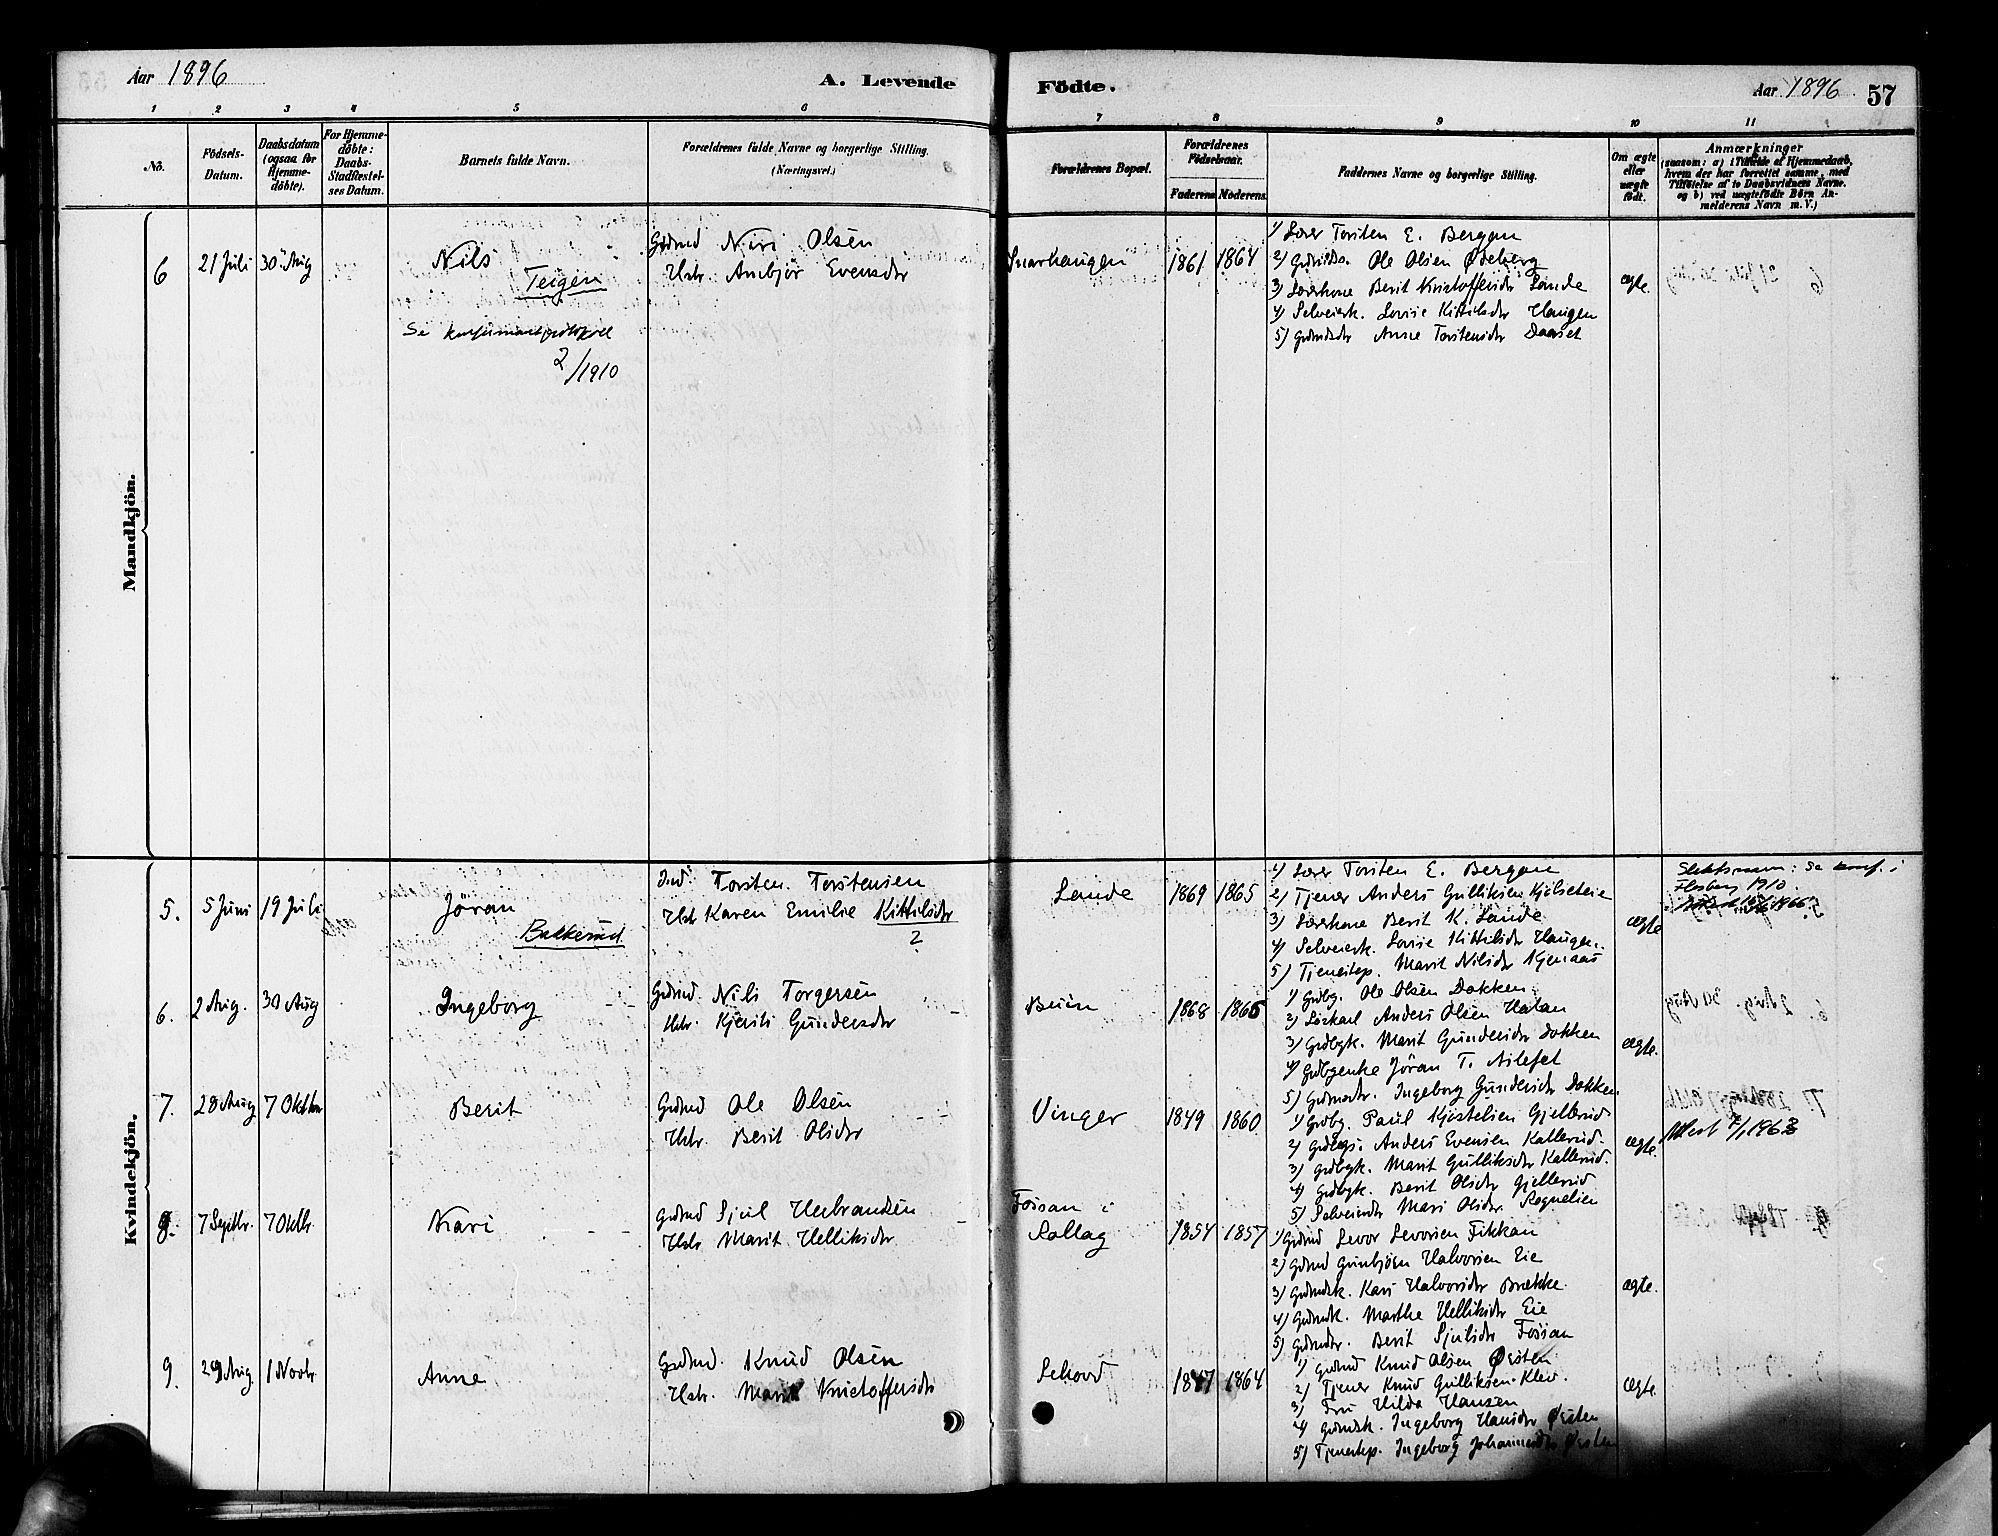 Aar 1896
A. Levende
Födte.
Aar 1896
57
1 2 3 4 5 6 7 8 9 10 11
No.
Födsels-
Datum.
Daabsdatum
(ogsaa for
Hjemme-
döbte).
For Hjemme-
döbte:
Daabs-
Stadfæstel-
ses Datum.
Barnets fulde Navn.
Forældrenes fulde Navne og borgerlige Stilling.
(Næringsvei.)
Forældrenes Bopæl.
Forældrenes
Födselsaar.
Faderens Moderens
Faddernes Navne og borgerlige Stilling.
Om ægte
eller
uægte
födt.
Anmærkninger
(saasom: a) i Tilfælde af Hjemmedaab,
hvem der har forrettet samme, med
Tilföielse af to Daabsvidners Navne.
og b) ved uægtefödte Börn An-
melderens Navn m. V.)
Mandkjön.
6 21 Juli 30 Aug
Nils
Teigen
Se konfirmantprotokoll
2/1910
Gdmd Olsen
Hstr. Anbjör Evensdr
1861 1864
1) Lærer Torsten E. Bergan
2) Ole Olsen Ödeberg
3) Lærerkone Berit Kristoffersdr Lande
4) Selveierk. Lovise Kittilsdr Haugen
5) Grdmdsdr Anne Torstensdr Daaset
ægte.
Kvindekjön.
5. 5 Juni 19 Juli
Jöran
Bakkerud
Ind. Torsten Torstensen
Hstr Karen Emilie Kittilsdr
2
Lande
1869 1865
1) Lærer Torsten E. Bergan
2) Tjener Anders Gulliksen Kjelseteie
3) Lærerkone Berit K. Lande
4) Selveierk. Lovise Kittilsdr Haugen
5) Tjenestep. Marit Nilsdr Kjenaas
ægte
Slektsnavn: Se konf. i
Flesberg 1910.
6. 2 Aug. 30 Aug
Ingeborg
Grdmd Nils Torgersen
Hstr. Kjersti Gundersdr
Buin
1868 1865
1) Grdbg. Ole Olsen Dokken
2) Löskarl Anders Olsen
3) Grdbgk. Marit Gundersdr Dokken
4) Grdbgenke Jöran T. Aslefet
5) Grdmsdr. Ingeborg Gundersdr Dokken
ægte.
7. 28 Aug 7 Oktbr
Berit
Grdmd Ole Olsen
Hstr. Berit Olsdr
Vinger
1849 1860
1) Grdbg. Paul Kjostelsen Gjellerud
2) Grdbgs. Anders Evensen Kallerud.
3) Grdbgk. Marit Gulliksdr Kallerud.
4) Grdbgk. Berit Olsdr Gjellerud
5) Selveierdtr Mari Olsdr Rognelien
ægte.
Attest 1963
8. 7 Septbr. 7 Oktbr.
Kari
Grdmd Sjul Herbrandsen
Hstr Marit Helliksdr
Fossan i
Rollag
1854 1857
1) Grdmd Levor Levorsen Fikkan
2) Grdmd Gunbjörn Halvorsen Eie
3) Grdmdsk. Kari Halvorsdr Brække.
4) Grdmdk. Marthe Helliksdr Eie
5) Grdmdsdr. Berit Sjulsdr Fossan
ægte.
9. 29 Aug. 1 Novbr.
Anne
Grdmd. Knud Olsen
Hstr. Marit Kristoffersdr
1847 1864
1) Grdmd Knud Olsen Östen
2) Tjener Knud Gulliksen Klev.
3) Fru Hilda Hansen
4) Grdmdsk. Ingeborg Hansdr Östen
5) Tjenestep. Ingeborg Johannesdtr Östen
ægte.